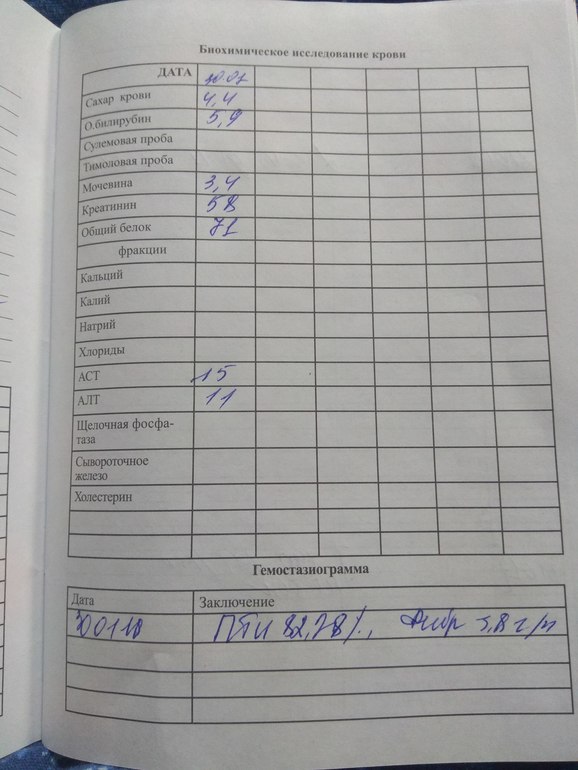 Биохимическое исследование крови
ДАТА 30 01
Сахар крови 4,4
О.билирубин 5,9
Сулемовая проба
Тимоловая проба
Мочевина 3,4
Креатинин 58
Общий белок 71
фракции
Кальций
Калий
Натрий
Хлориды
АСТ 15
АЛТ 11
Щелочная фосфа-
таза
Сывороточное
железо
Холестерин
Гемостазиограмма
Дата Заключение
ПТИ 82,78%, Фибр г/л